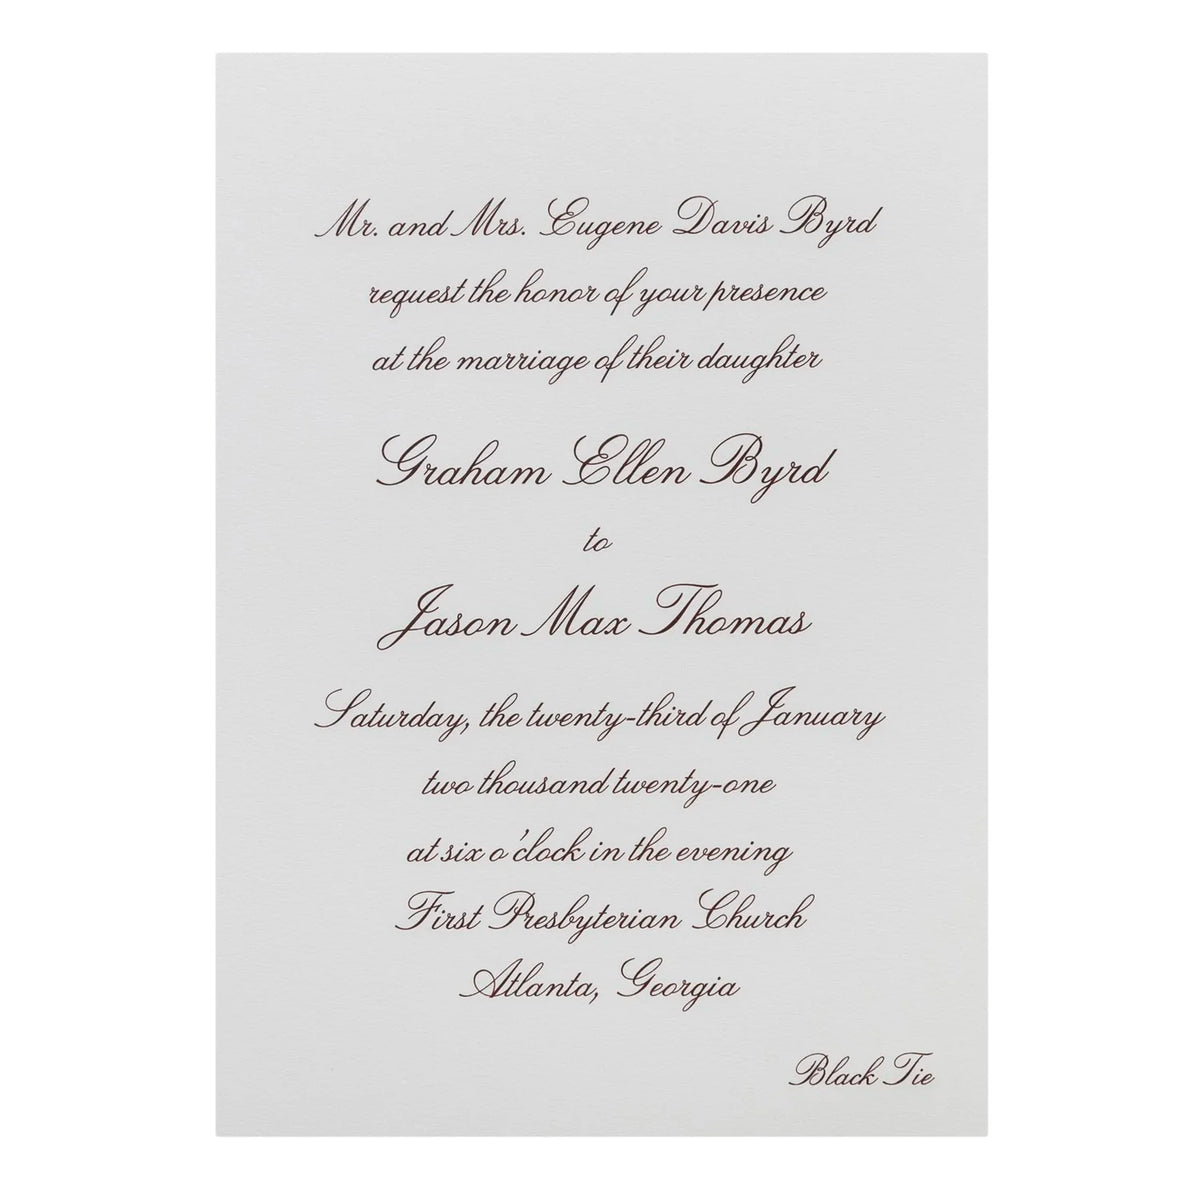 Mr. and Mrs. Eugene Davis Byrd
request the honor of your presence
at the marriage of their daughter
Graham Ellen Byrd
to
Jason Max Thomas
Saturday, the twenty-third of January
two thousand twenty-one
at six o'clock in the evening
First Presbyterian Church
Atlanta, Georgia
Black Tie